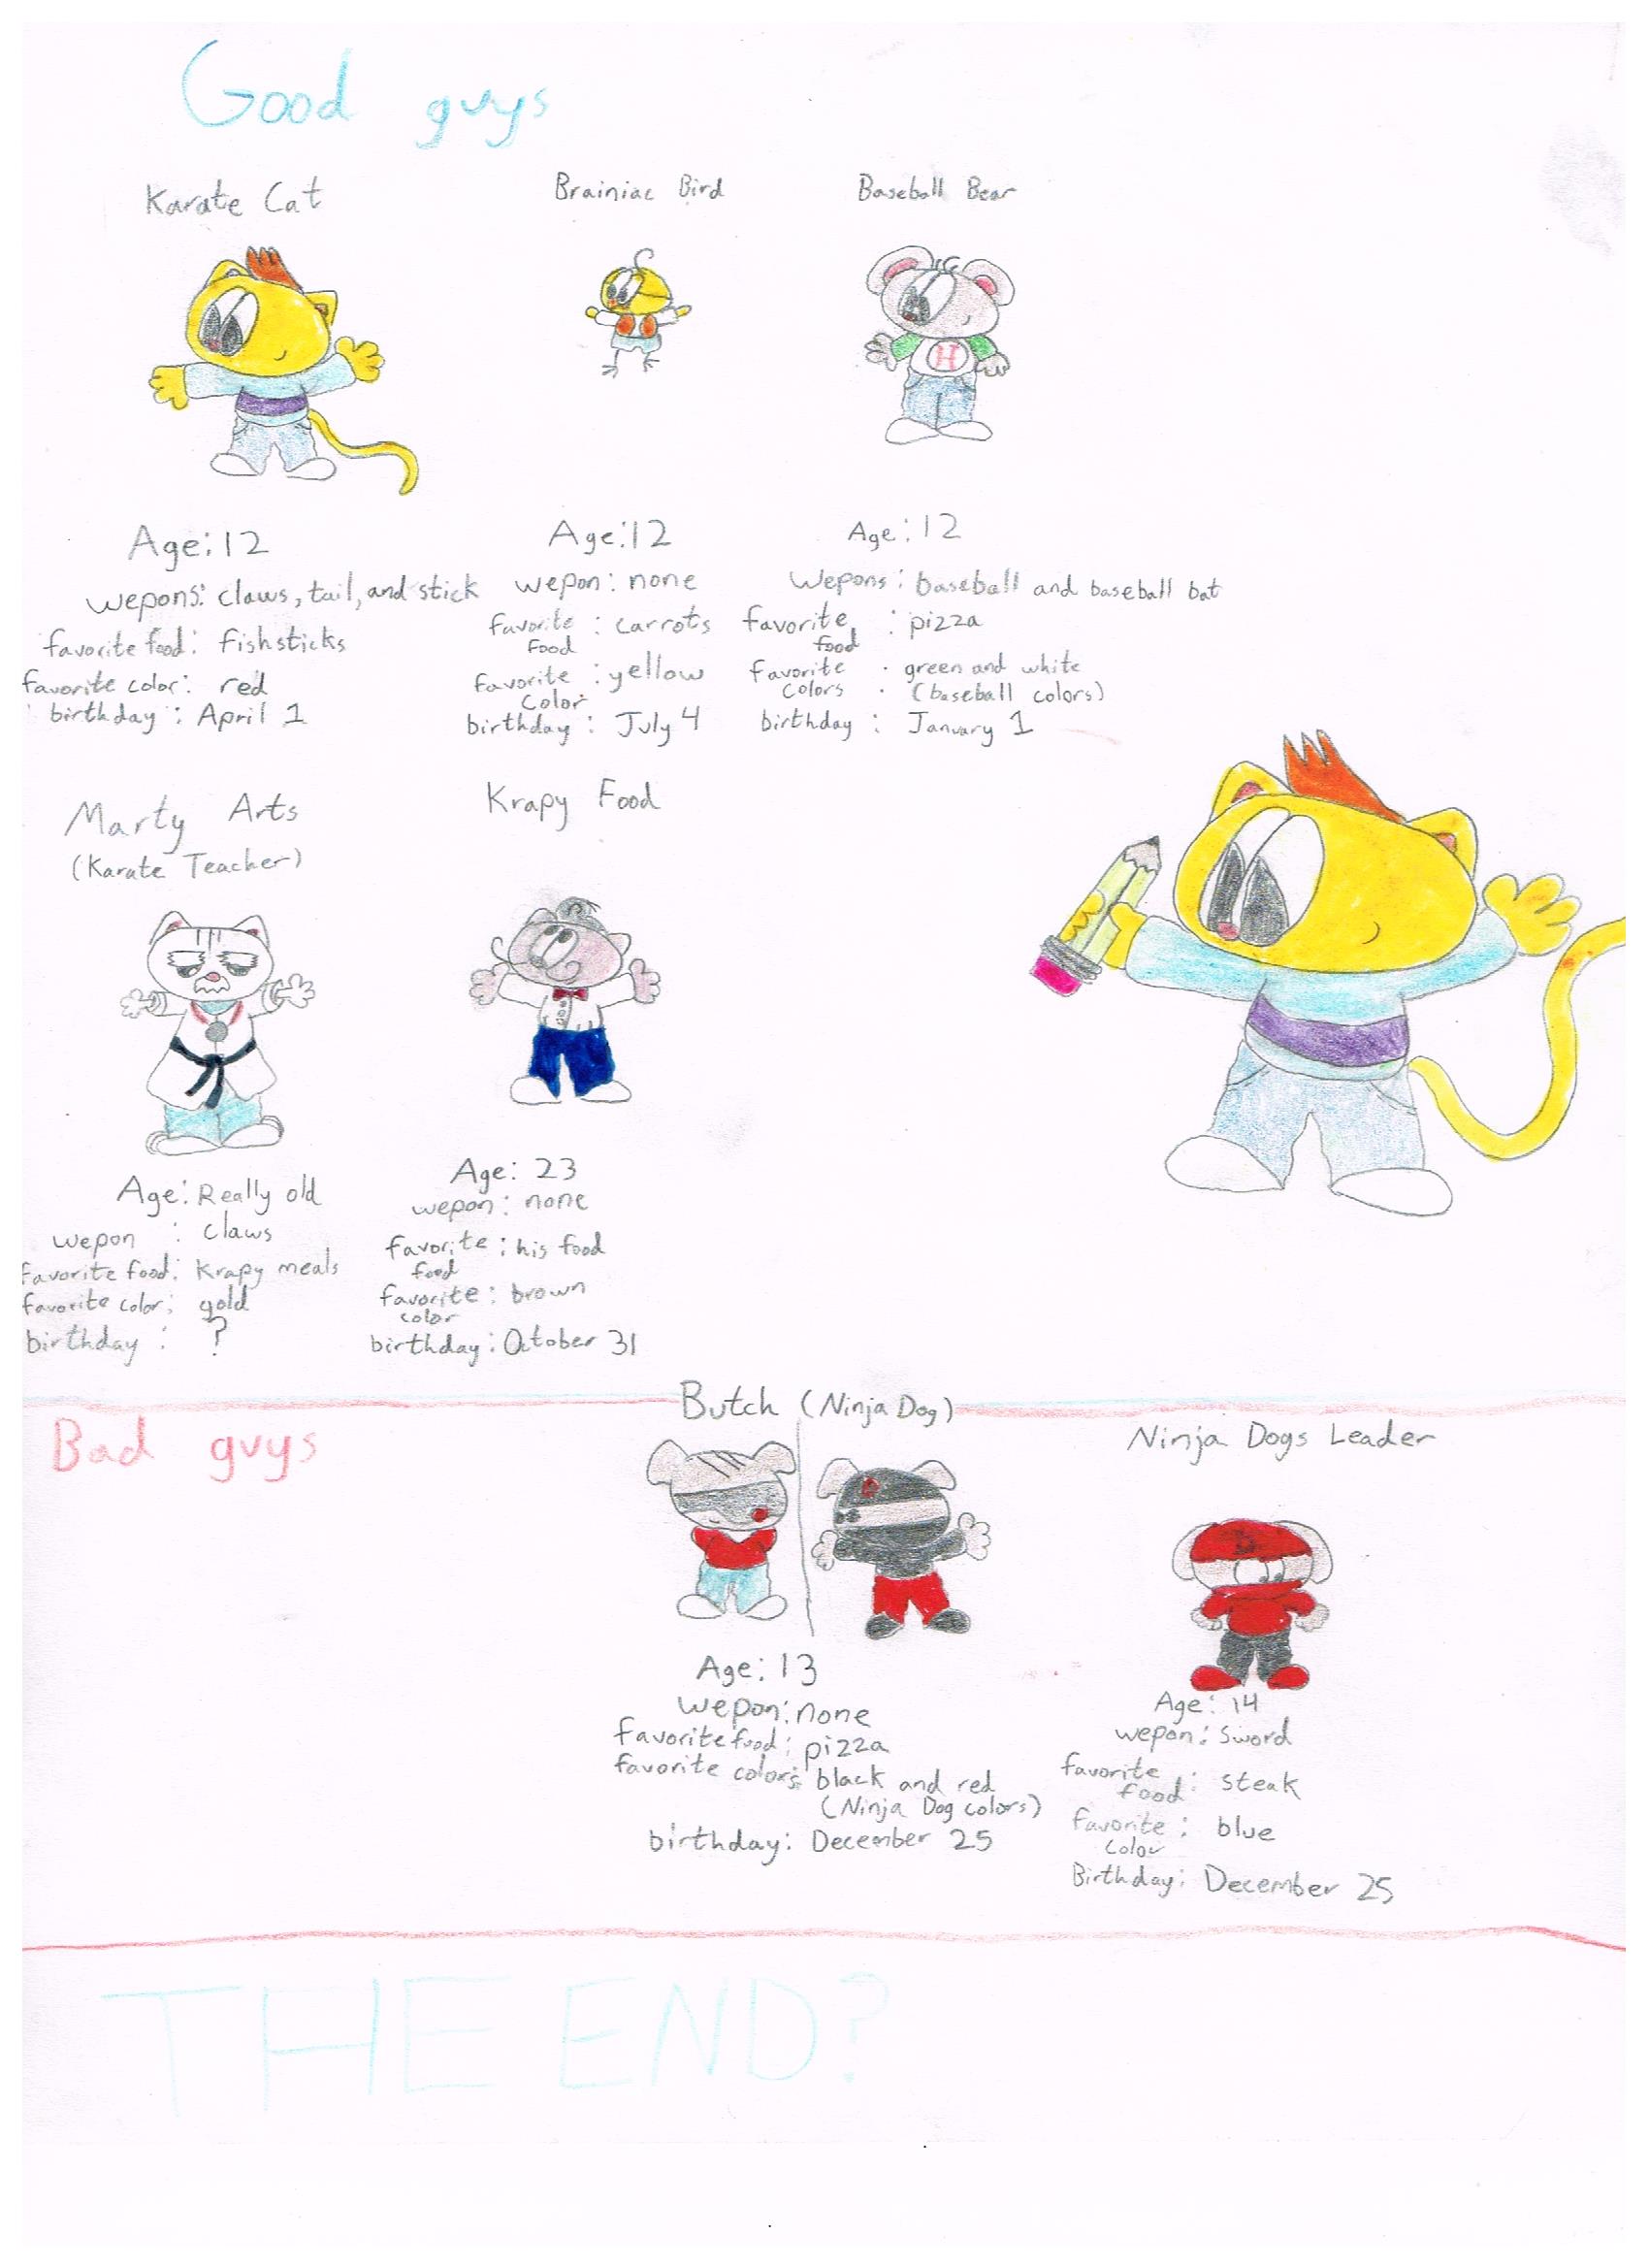 Good guys
Karate Cat
Brainiac Bird
Baseball Bear
H
Age: 12
wepons: claws, tail, and stick
favorite food: fishsticks
favorite color: red
birthday: April 1
Age: 12
wepon: none
favorite food: carrots
favorite color: yellow
birthday: July 4
Age: 12
Wepons: baseball and baseball bat
favorite food: pizza
favorite colors: green and white
(baseball colors)
birthday: January 1
Marty Arts
(Karate Teacher)
Krapy Food
Age: Really old
wepon: claws
favorite food: Krapy meals
favorite color: gold
birthday: ?
Age: 23
wepon: none
favorite food: his food
favorite color: brown
birthday: October 31
Bad guys
Butch (Ninja Dog)
Ninja Dogs Leader
Age: 13
wepon: none
favorite food: pizza
favorite colors: black and red
(Ninja Dog colors)
birthday: December 25
Age: 14
wepon: sword
favorite food: steak
favorite color: blue
Birthday: December 25
THE END?